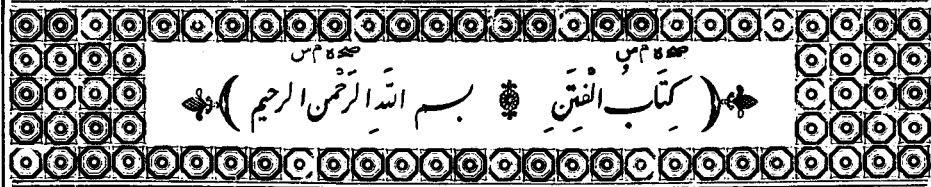 ( كِتَابُ الْفِتَنِ ۞ بسم اللَّهِ الرَّحْمنِ الرحيم )